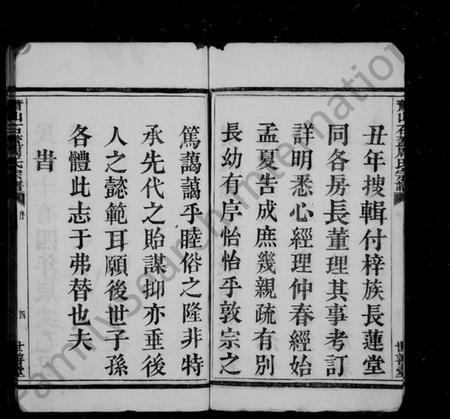 丑年搜輯付梓族長蓮堂
同各房長董理其事考訂
詳明悉心經理仲春經始
孟夏告成庶幾親疏有別
長幼有序怡怡乎敦宗之
篤藹藹乎睦俗之隆非特
承先代之貽謀抑亦垂後
人之懿範耳願後世子孫
各體此志于弗替也夫
旹
序
四
世善堂
世善堂
FamilySearch International